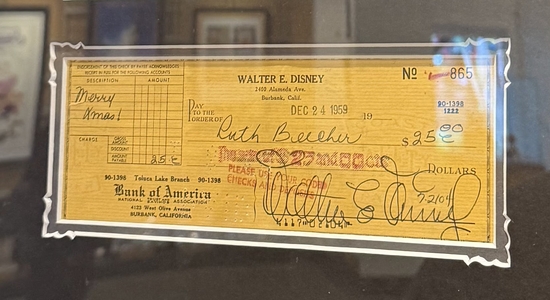 ENDORSEMENT OF THIS CHECK BY PAYEE ACKNOWLEDGES
RECEIPT IN FULL FOR THE FOLLOWING ACCOUNTS
DESCRIPTION AMOUNT
Merry
Xmas!
CHARGE
GROSS AMOUNT
DISCOUNT
AMOUNT PAYABLE 25
WALTER E. DISNEY
2400 Alameda Ave.
Burbank, Calif.
No 865
90-1398
1222
DEC 24 1959 19
PAY
TO THE
ORDER OF Ruth Beecher $25 00
25 and 00 cts DOLLARS
PLEASE
CHECKS AND
90-1398 Toluca Lake Branch 90-1398
Bank of America
NATIONAL SAVINGS ASSOCIATION
4123 West Olive Avenue
BURBANK, CALIFORNIA
Walter E Disney